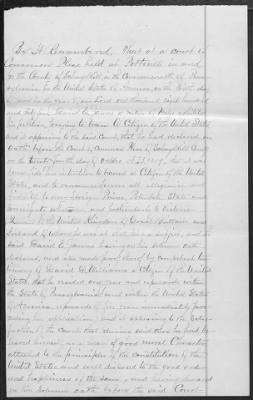 Be it Remembered, That at a Court of
Common Pleas held at Pottsville in and
for the County of Schuylkill in the Commonwealth of Penn
sylvania in the United States of America, on the
day of in the year of our Lord one thousand eight hundred
and fifty four David D. James a native of Wales exhibited
a petition praying to become a Citizen of the United States
and it appearing to the said Court, that he had declared on
Oath before the Court of Common Pleas of Schuylkill County
on the day of October A.D. 1849, that it was
bona fide his intention to become a Citizen of the United
States, and to renounce forever all allegiance and
fidelity to any foreign Prince, Potentate, State and
Sovereignty whatsoever and particularly to Victoria
Queen of the United Kingdom of Great Britain and
Ireland of whom he was at that time a subject, and the
said David D. James having on his solemn oath
declared, and also made proof thereof by competent tes
timony of David D. Williams a Citizen of the United
States, that he resided one year and upwards within
the State of Pennsylvania and within the United States
of America upwards of five years immediately pre
ceding his application, and it appearing to the satis
faction of the Court, that during said time he had be
haved himself as a man of good moral Character
attached to the principles of the constitution of the
United States and well disposed to the good order
and happiness of the same, and having declared
on his solemn oath before the said Court